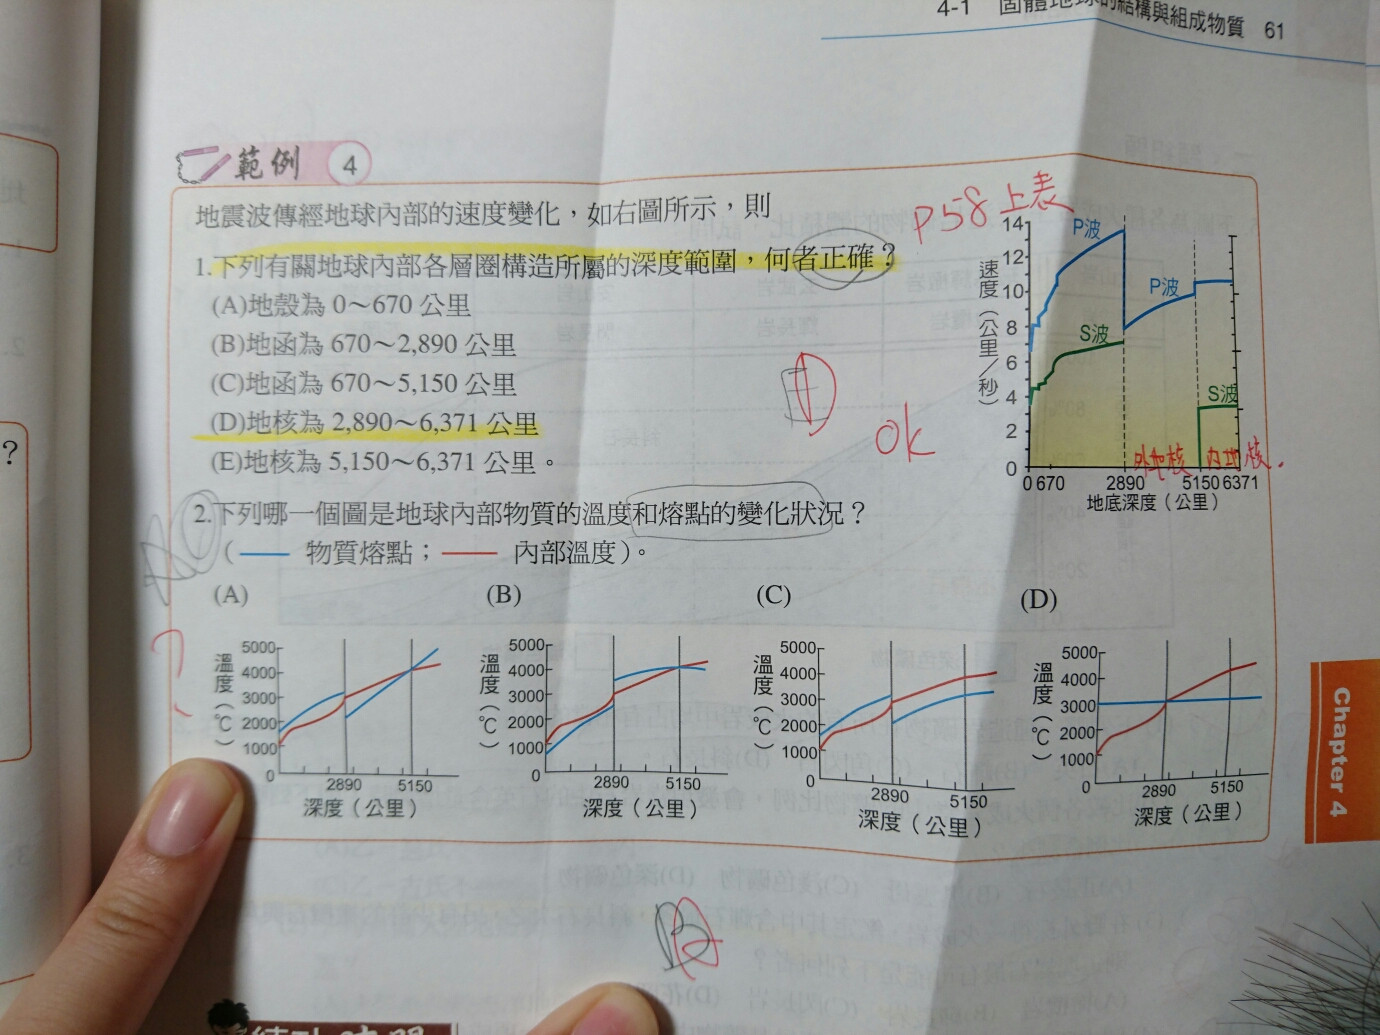 4-1 固體地球的結構與組成物質 61
範例 4
地震波傳經地球內部的速度變化，如右圖所示，則
1.下列有關地球內部各層圈構造所屬的深度範圍，何者正確？
(A)地殼為 0～670 公里
(B)地函為 670～2,890 公里
(C)地函為 670～5,150 公里
(D)地核為 2,890～6,371 公里
(E)地核為 5,150～6,371 公里。
P58 上表
D
ok
速度（公里／秒）
14
12
10
8
6
4
2
0
P波
P波
S波
S波
外地核 內地核.
0 670 2890 5150 6371
地底深度（公里）
2.下列哪一個圖是地球內部物質的溫度和熔點的變化狀況？
（ 物質熔點； 內部溫度）。
?
(A) (B) (C) (D)
溫度（℃）
5000
4000
3000
2000
1000
0
2890 5150
深度（公里）
溫度（℃）
5000
4000
3000
2000
1000
0
2890 5150
深度（公里）
溫度（℃）
5000
4000
3000
2000
1000
0
2890 5150
深度（公里）
溫度（℃）
5000
4000
3000
2000
1000
0
2890 5150
深度（公里）
Chapter 4
?